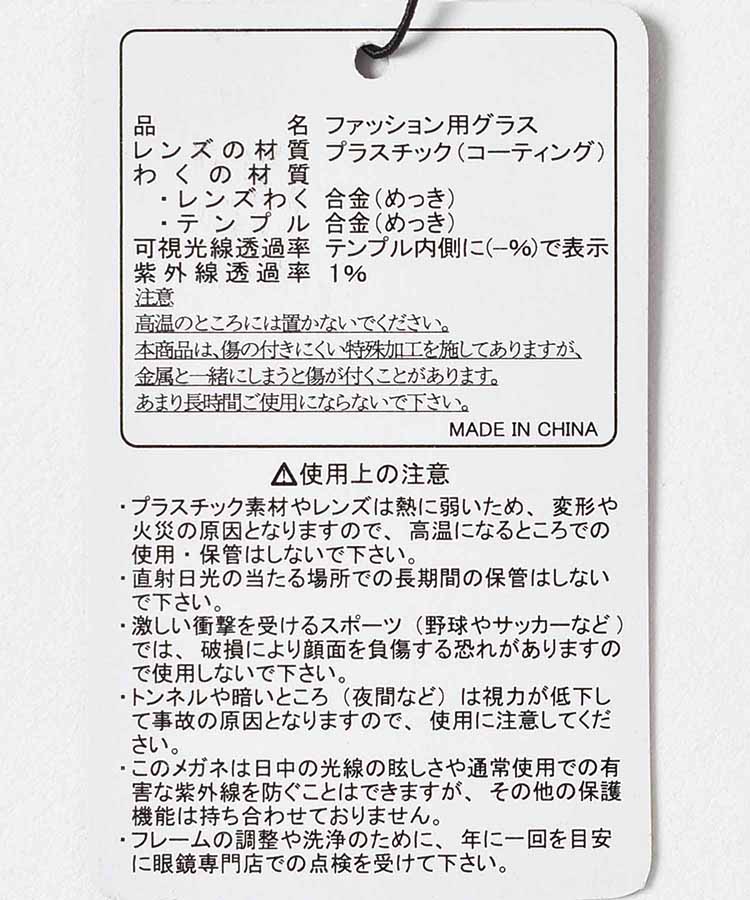 品名 ファッション用グラス
レンズの材質 プラスチック(コーティング)
わくの材質
・レンズわく 合金(めっき)
・テンプル 合金(めっき)
可視光線透過率 テンプル内側に(-%)で表示
紫外線透過率 1%
注意
高温のところには置かないでください。
本商品は、傷の付きにくい特殊加工を施してありますが、
金属と一緒にしまうと傷が付くことがあります。
あまり長時間ご使用にならないで下さい。
MADE IN CHINA
⚠使用上の注意
・プラスチック素材やレンズは熱に弱いため、変形や
火災の原因となりますので、高温になるところでの
使用・保管はしないで下さい。
・直射日光の当たる場所での長期間の保管はしない
で下さい。
・激しい衝撃を受けるスポーツ(野球やサッカーなど)
では、破損により顔面を負傷する恐れがありますの
で使用しないで下さい。
・トンネルや暗いところ(夜間など)は視力が低下し
て事故の原因となりますので、使用に注意してくだ
さい。
・このメガネは日中の光線の眩しさや通常使用での有
害な紫外線を防ぐことはできますが、その他の保護
機能は持ち合わせておりません。
・フレームの調整や洗浄のために、年に一回を目安
に眼鏡専門店での点検を受けて下さい。